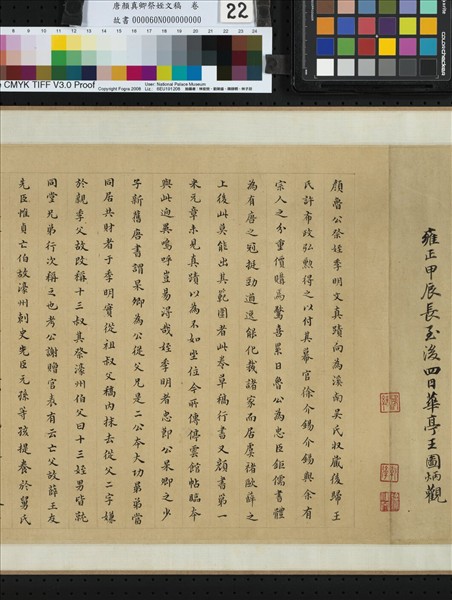 唐顏真卿祭姪文稿 卷
故書 000060N000000000
22
CMYK TIFF V3.0 Proof
Copyright Fogra 2008
User: National Palace Museum
雍正甲辰長至後四日華亭王圖炳觀
顏魯公祭姪季明文真蹟向為溪南吳氏收藏後歸王
氏許布政弘勲得之以付其幕官徐介錫介錫與余有
宗人之分重價購為驚喜累日魯公為忠臣鉅儒書體
為有唐之冠挺勁遒逸能化裁諸家而居虞褚歐薛之
上後此莫能出其範圍者此卷草稿行書又顏書第一
米元章未見真蹟以為不如坐位今所傳停雲館帖臨本
與此逈異嗚呼豈易得哉姪季明者忠節公杲卿之少
子新舊唐書謂杲卿為公從父兄是二公本大功弟弟當
同居共財者于季明實從祖叔父稿內抹去從父二字嫌
於親季父故改稱十三叔其祭濠州伯父曰十三姪男皆就
同堂兄弟行次稱之也考公謝贈官表有云亡父故薛王友
先臣惟貞亡伯故濠州刺史先臣元孫等孩提養於舅氏